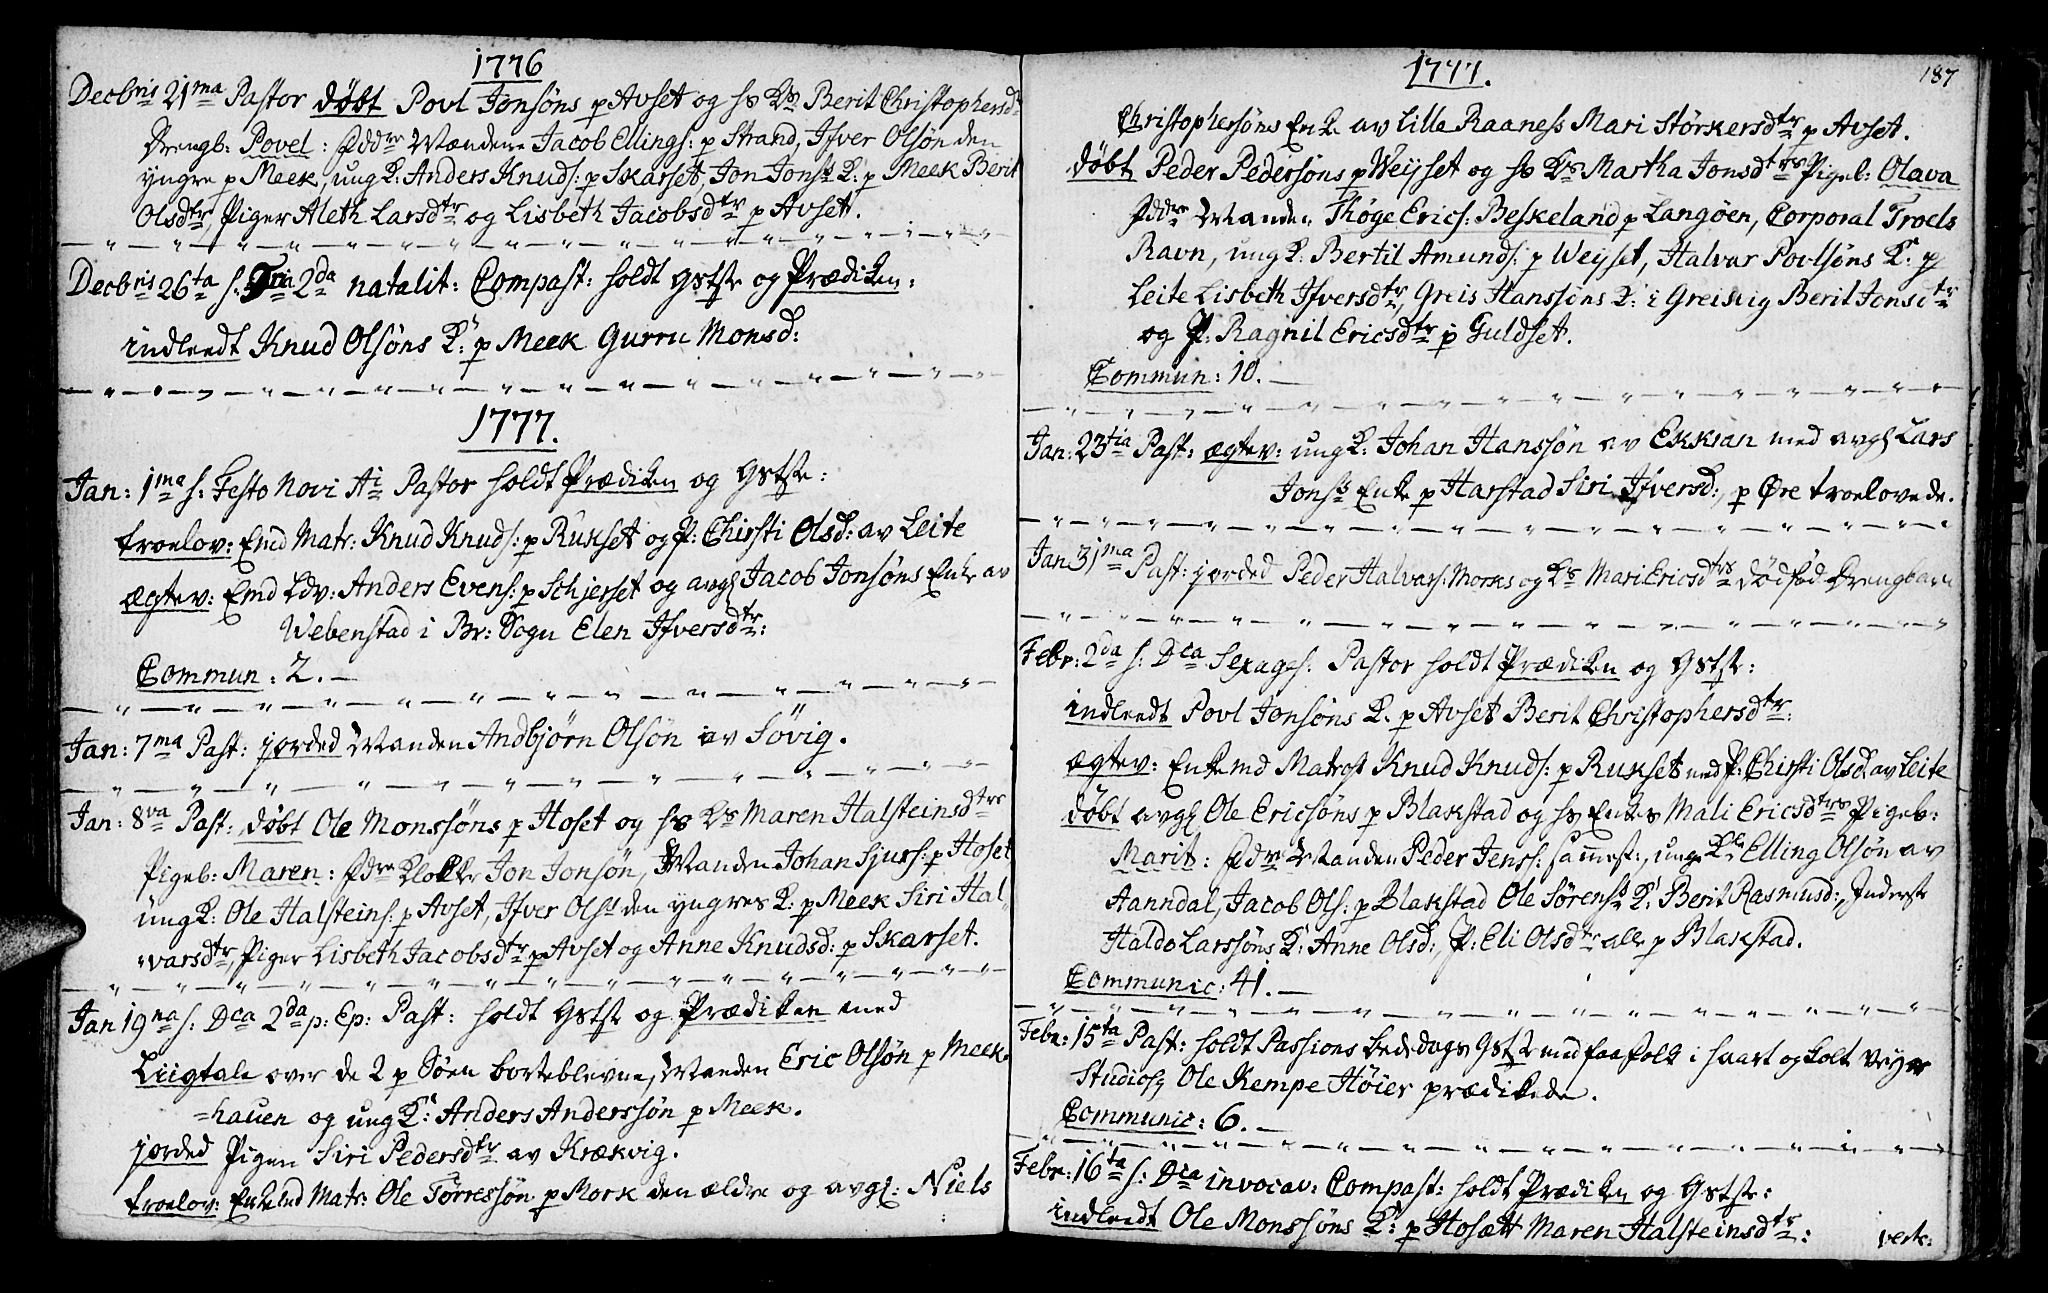 1776
Decbris 21ma Pastor døbt Povl Jonsøns p Avset og hs Ks Berit Christophersd:
Drengb: Povel: Fddre Mændene Jacob Ellings: p Strand, Ifver Olsøn den
yngre p Meek, ung K: Anders Knuds: p Skarset, Jon Jonss K: p Meek Berit
Olsdtr, Piger Aleth Larsdtr og Lisbeth Jacobsdtr p Avset.
Decbris 26ta s: Fri 2da natalit: Compast: holdt Gstste og Prædiken:
indleedt Knud Olsøns K: p Meek Gurru Monsd:
1777.
Jan: 1ma s: Festo Novi Ai Pastor holdt Prædiken og Gstste:
troelov: Emd Matr: Knud Knuds: p Rukset og P: Chirsti Olsd: av Leite
ægtev: Emd Ldv: Anders Evens: p Schjerset og avgl Jacob Jonsøns Enke av
Webenstad i Br: Sogn Elen Ifversdtr:
Commun: 2.
Jan: 7ma Past: jorded Manden Andbjørn Olsøn av Søvig.
Jan: 8va Past: døbt Ole Monssøns p Hoset og hs Ks Maren Halsteinsdtrs
Pigeb: Maren: Fdre Klokker Jon Jonsøn, Manden Johan Sjurs: p Hoset
ung K: Ole Halsteins: p Avset, Ifver Olss den yngres K: p Meek Siri Hal=
=varsdtr, Piger Lisbeth Jacobsdtr p Avset og Anne Knudsd: p Skarset.
Jan 19na s: Dca 2da p: Ep: Past: holdt Gstste og Prædiken med
Liigtale over de 2 p Søen borteblevne, Manden Eric Olsøn p Meek=
=hauen og ung K: Anders Anderssøn p Meek.
jorded Pigen Siri Pedersdtr av Krækvig.
troelov: Enkemd Matr: Ole Torressøn p Mork den ældre og avgl: Niels
1777.
187
Christophersøns Enke av Lille Raaness Mari Størkersdtr p Avset.
døbt Peder Pedersøns p Weyset og hs Ks Martha Jonsdtrs Pigeb: Olava
Fddre Manden Thøge Erics: Beskeland p Langøen, Corporal Troels
Ravn, ung K: Bertil Amunds: p Weyset, Halvar Povlsøns K: p
Leite Lisbeth Ifversdtr, Greis Hanssøns K: i Greisvig Berit Jonsdtr
og P: Ragnil Ericsdtr p Guldset.
Commun: 10.
Jan: 23tia Past: ægtev: ung K: Johan Hanssøn av Ekksan med avgl Lars
Jonss Enke p Harstad Siri Ifversd:, p Øre troelovede.
Jan 31ma Past: jorded Peder Halvars: Morks og Ks Mari Ericsdtrs dødfød Drengbarn
Febr: 2da s: Dca Sexages: Pastor holdt Prædiken og Gstste:
indleedt Povl Jonsøns K. p Avset Berit Christophersdtr:
ægtev: Enkemd Matros Knud Knuds: p Rukset med P: Chirsti Olsd: av Leite
døbt avgl Ole Ericsøns p Blakstad og hs Enkes Mali Ericsdtrs Pigeb:
Marit: Fdre Manden Peder Jenss: samest:, unge Kle Elling Olsøn av
Aanndal, Jacob Ols: p Blakstad Ole Sørenss K: Berit Rasmusd:, Inderst
Haldo Larssøns K: Anne Olsd:, P: Eli Olsdtr alle p Blakstad.
Communic: 41.
Febr: 15ta Past: holdt Passions Bededags Gstste med faa folk i haart og kolt veyr
Studiosq Ole Kempe Høier prædikede.
Communic: 6.
Febr: 16ta s: Dca invocav: Compast: holdt Prædiken og Gstste:
indleedt Ole Monssøns K: p Hosætt Maren Halsteinsdtr:
verk: